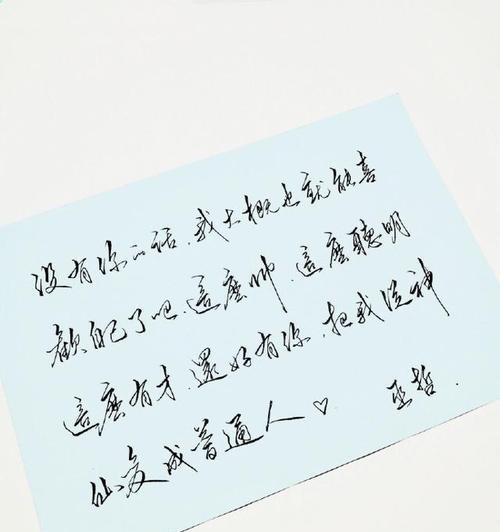 没有你的话，我大概也就能喜
歡自己了吧，這麼帅，這麼聰明
這麼有才，還好有你，把我從神
仙变成普通人♡ 巫哲.